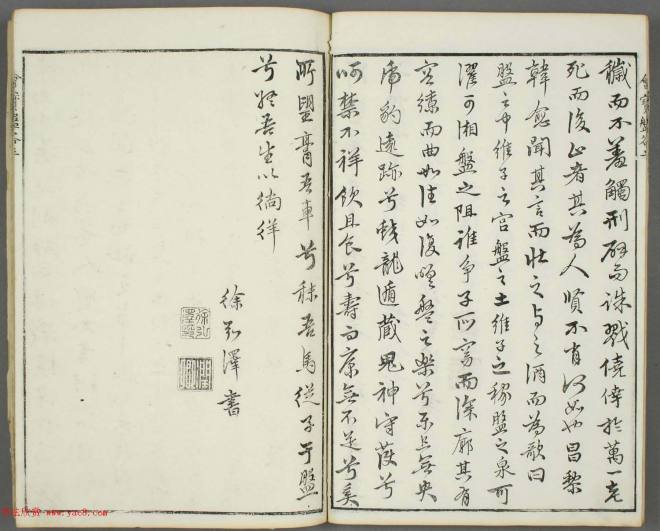 穢而不羞觸刑辟而誅戮僥倖於萬一老
死而後止者其為人賢不肖何如也昌黎
韓愈聞其言而壯之與之酒而為歌曰
盤之中維子之宮盤之土維子之稼盤之泉可
濯可湘盤之阻誰爭子所窈而深廓其有
容繚而曲如往如復嗟盤之樂兮樂且無央
虎豹遠跡兮蛟龍遁藏鬼神守護兮
呵禁不祥飲且食兮壽而康無不足兮奚
所望膏吾車兮秣吾馬從子于盤
兮終吾生以徜徉
徐弘澤書
www.yac8.com